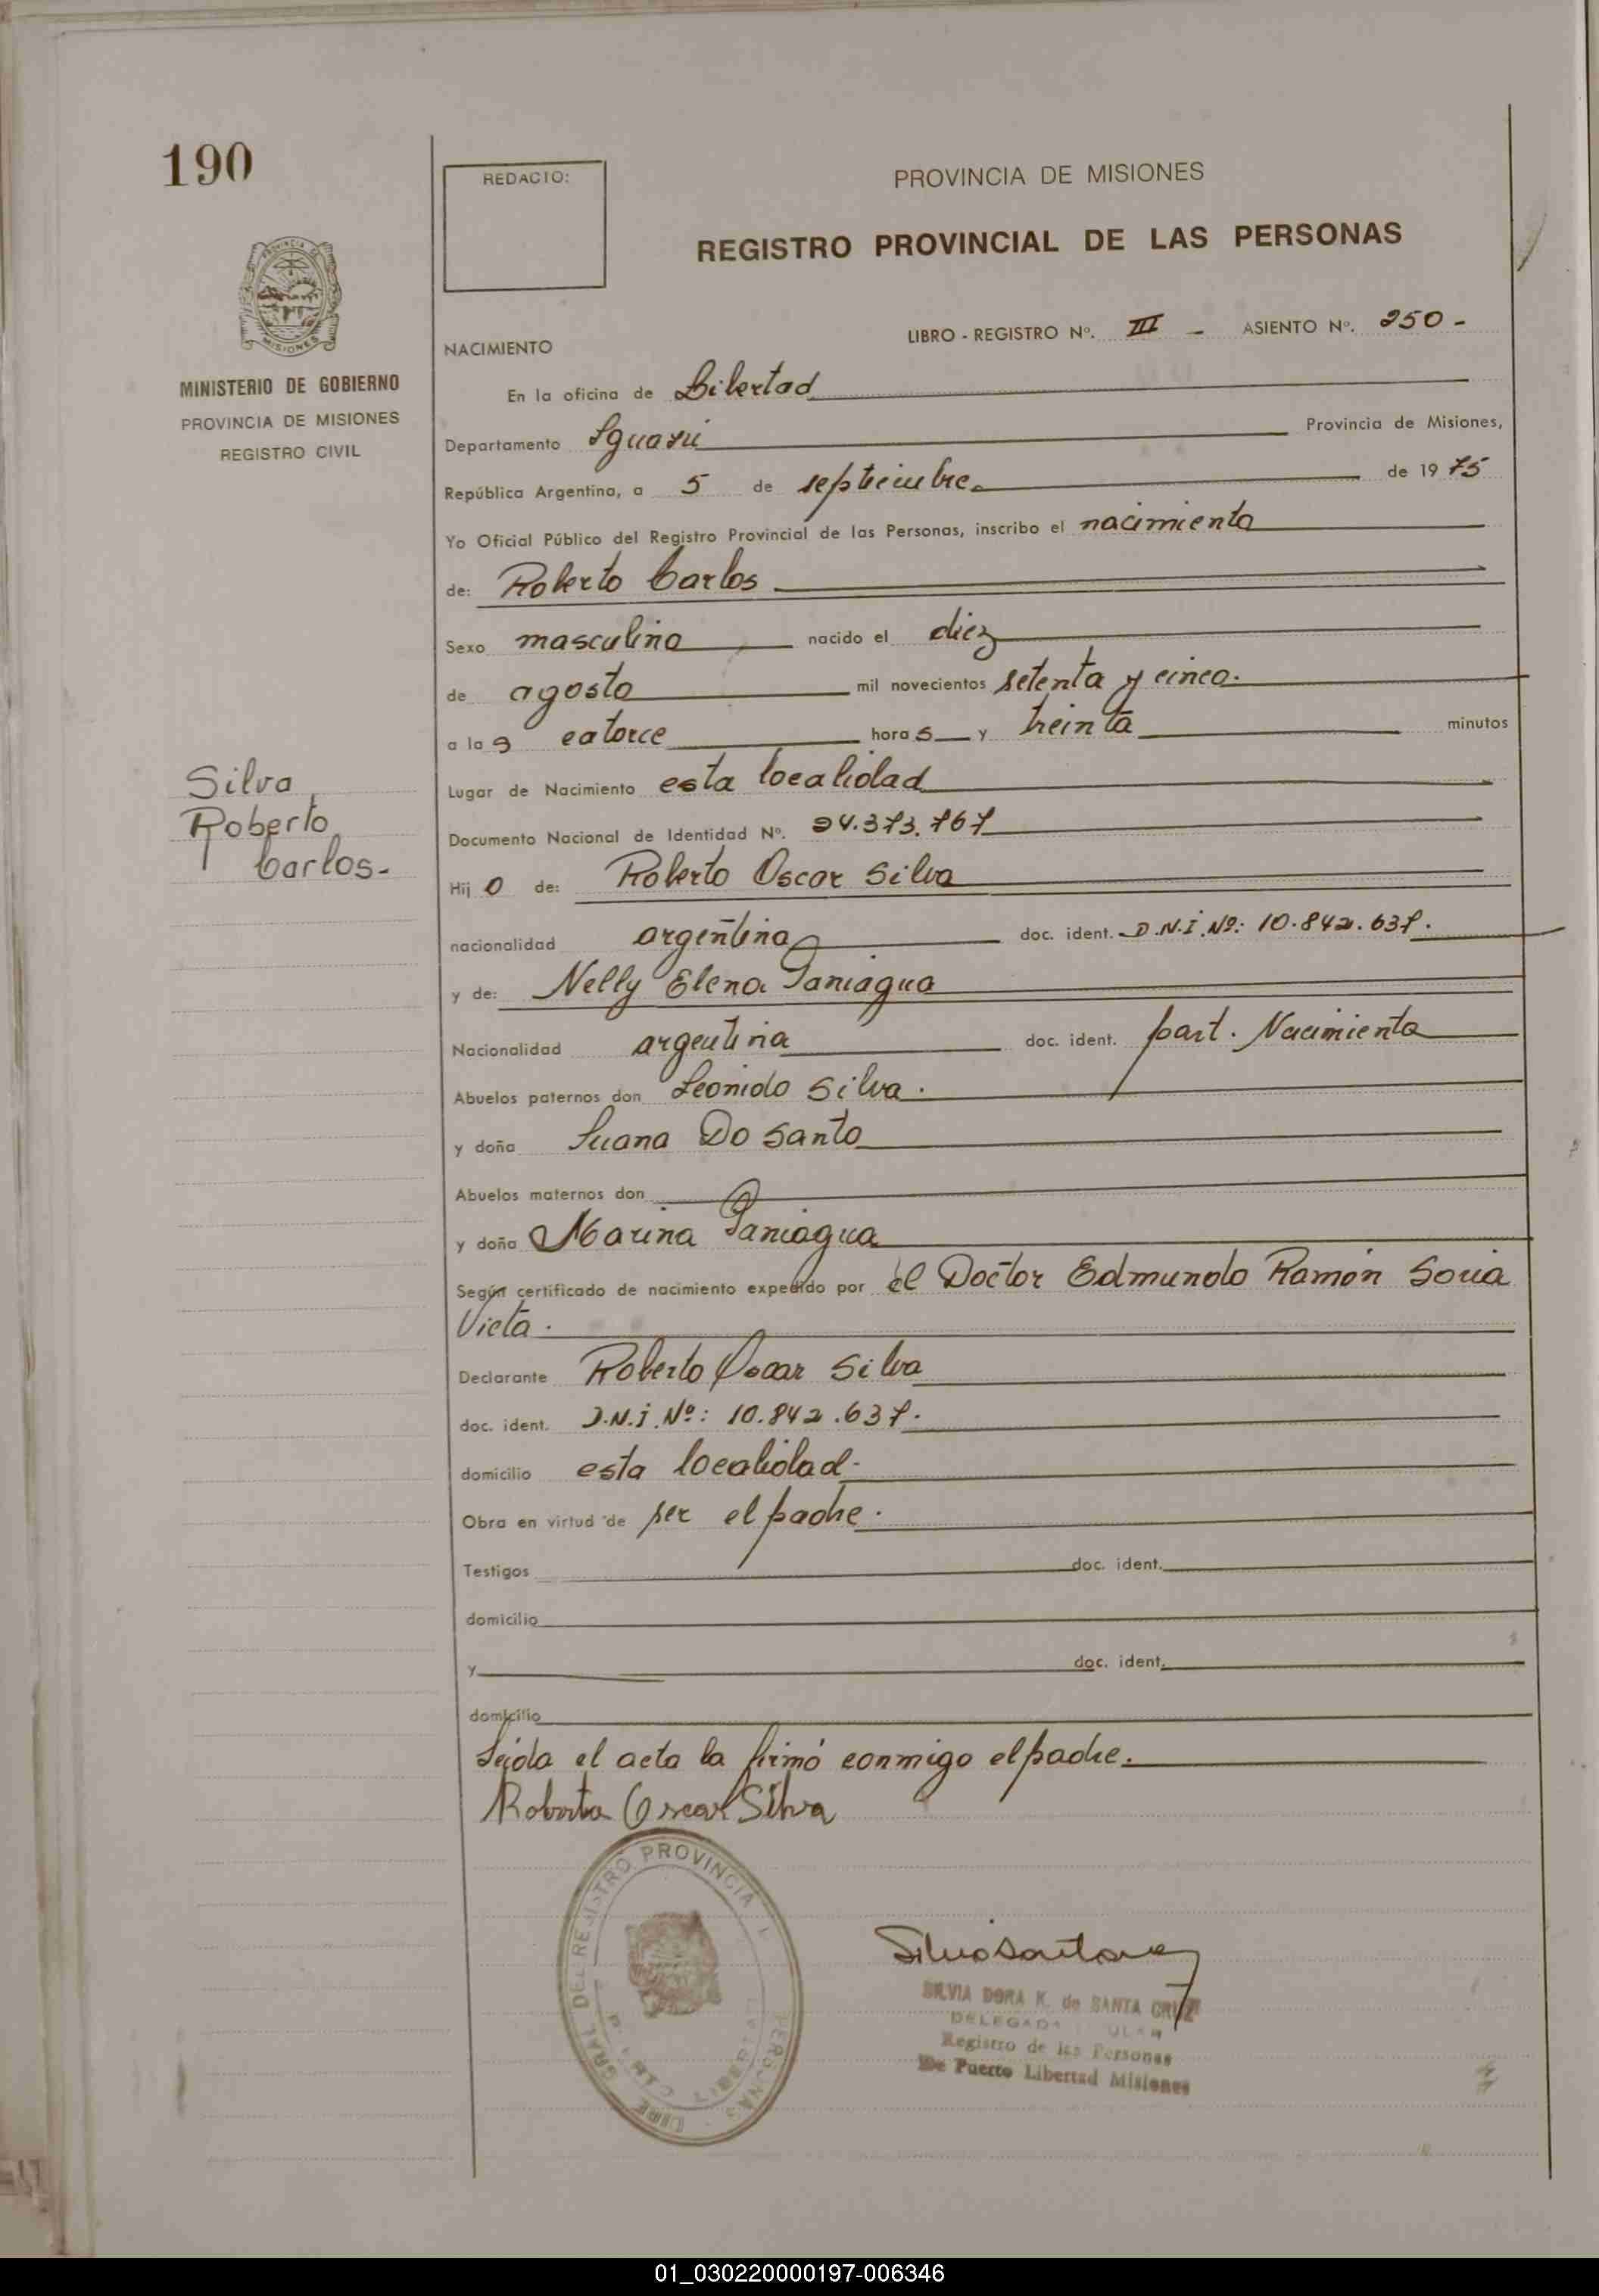 190
REDACTO:
PROVINCIA DE MISIONES
REGISTRO PROVINCIAL DE LAS PERSONAS
MISIONES
MINISTERIO DE GOBIERNO
PROVINCIA DE MISIONES
REGISTRO CIVIL
LIBRO - REGISTRO Nº. III - ASIENTO Nº. 250 -
NACIMIENTO
En la oficina de Libertad
Departamento Iguazú Provincia de Misiones,
República Argentina, a 5 de septiembre de 1975
Yo Oficial Público del Registro Provincial de las Personas, inscribo el nacimiento
de: Roberto Carlos
Sexo masculino nacido el diez
de agosto mil novecientos setenta y cinco.
a las catorce horas y treinta minutos
Lugar de Nacimiento esta localidad
Documento Nacional de Identidad Nº. 24.373.767
Silva
Roberto
Carlos.-
Hijo de: Roberto Oscar Silva
nacionalidad argentina doc. ident. D.N.I. Nº: 10.842.637.
y de: Nelly Elena Paniagua
Nacionalidad argentina doc. ident. part. Nacimiento
Abuelos paternos don Leonido Silva.
y doña Juana Do Santo
Abuelos maternos don
y doña Marina Paniagua
Según certificado de nacimiento expedido por el Doctor Edmundo Ramón Soria
Vieta.
Declarante Roberto Oscar Silva
doc. ident. D.N.I. Nº: 10.842.637.
domicilio esta localidad.
Obra en virtud de ser el padre.
Testigos doc. ident.
domicilio
y doc. ident.
domicilio
Leída el acta la firmó conmigo el padre.
Roberto Oscar Silva
GRAL DEL REGISTRO PROVINCIAL PERSONAS
SILVIA DORA K. de SANTA CRUZ
DELEGADA
Registro de las Personas
De Puerto Libertad Misiones
01_030220000197-006346